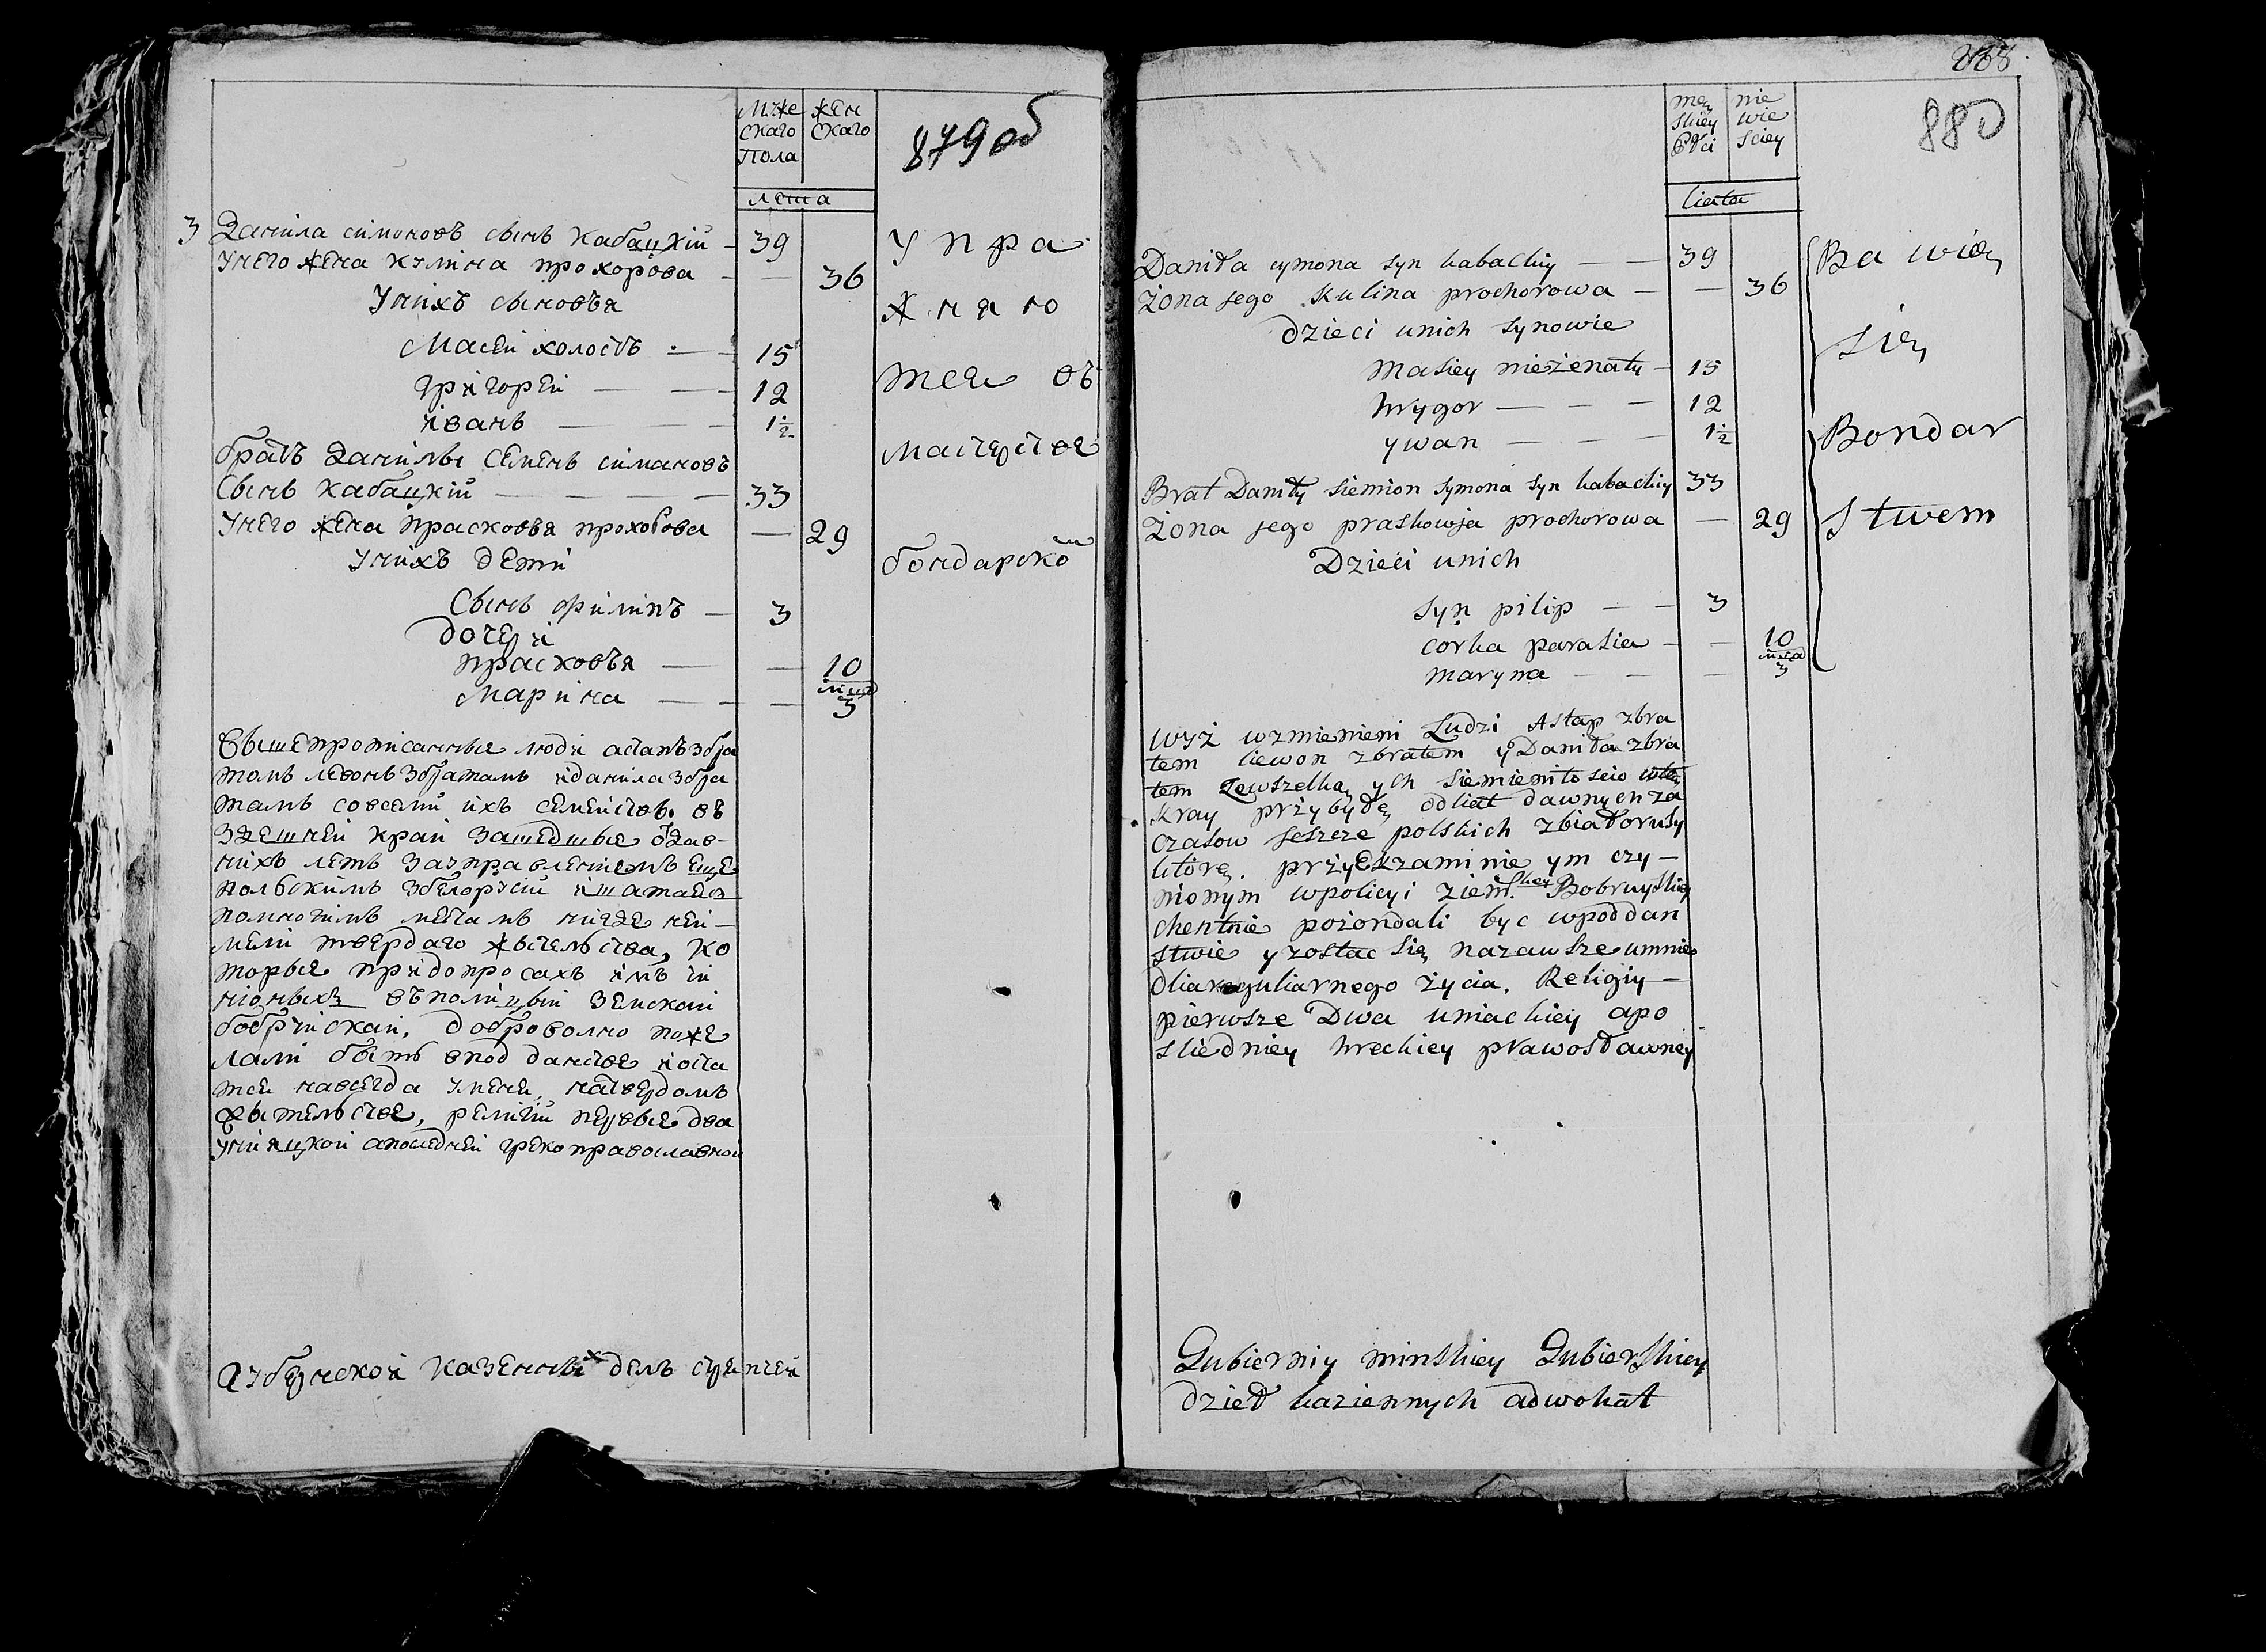 мҙже
скаго
пола
жен
скаго
879 об
лета
3 Данила симоновъ сынъ Кабацкій — 39
Унего жена кулiна прохорова — — 36
Унiхъ сыновья
Масѣй холостъ — — 15
григорей — — 12
iванъ — — 1½
братъ Данилы Семенъ симановъ
Сынъ Кабацкій — — — — 33
Унего жена Прасковья прохорова — 29
Унiхъ дети
Сынъ филiпъ — 3
дочерi
прасковъя — — 10
Марина — — — 3
Упра
жняю
тся въ
мастерстве
бондарской
Вышепрописанные людi астапъ збра
томъ левонъ збратамъ iданила збра
тамъ совсемi ихъ семействѣ. въ
здешней край зашедшые отдав-
нихъ летъ зауправленiемъ еще
польскимъ збелорусiи iшатаясь
помногимъ местамъ нигде неи-
мелi твердаго жытельства, ко
торые прiдопросахъ iмъ чi
нiоныхъ въполiцыи Земскаи
бобруйскай, доброволно поже
лалi быть вподданстве iоста
тся навсегда умене, натвердомъ
жытельстве, релiгiи первые два
унiяцкой апоследней грекоправославной
Азбернской казенныхъ делъ стряпчей
268
880
męz
skiey
Płci
nie
wie
sciey
lieta
Daniła symona syn kabackiy — — 39
żona jego Kulina prochorowa — — 36
dzieci unich synowie
Masiey nieżenaty — 15
hrygor — — — 12
ywan — — — 1½
Brat Daniły siemion symona syn kabackiy 33
żona jego praskowja prochorowa — 29
Dzieci unich
syn pilip — — 3
corka parasia — — 10
maryna — — — 3
Ba wią
się
Bondar
stwem
wyż wzmienieni Ludzi Astap zbra
tem liewon zbratem y Daniła zbra
tem zewszelką ych siemienitoscio wten
kray przybyłe odliat dawnych za
czasow jeszcze polskich zbiałorusy
litorę. przyEkzaminie ym czy—
nionym wpolicyi ziemskey Bobruyskiey
chentnie pożondali byc wpoddan
stwie y zostac się nazawsze umnie
dlia reguliarnego życia, Religiy —
pierwsze Dwa uniackiey apo
sliedniey hreckiey prawosławney
Gubierniy minskiey Gubierskiey
dzieł kaziennych adwokat